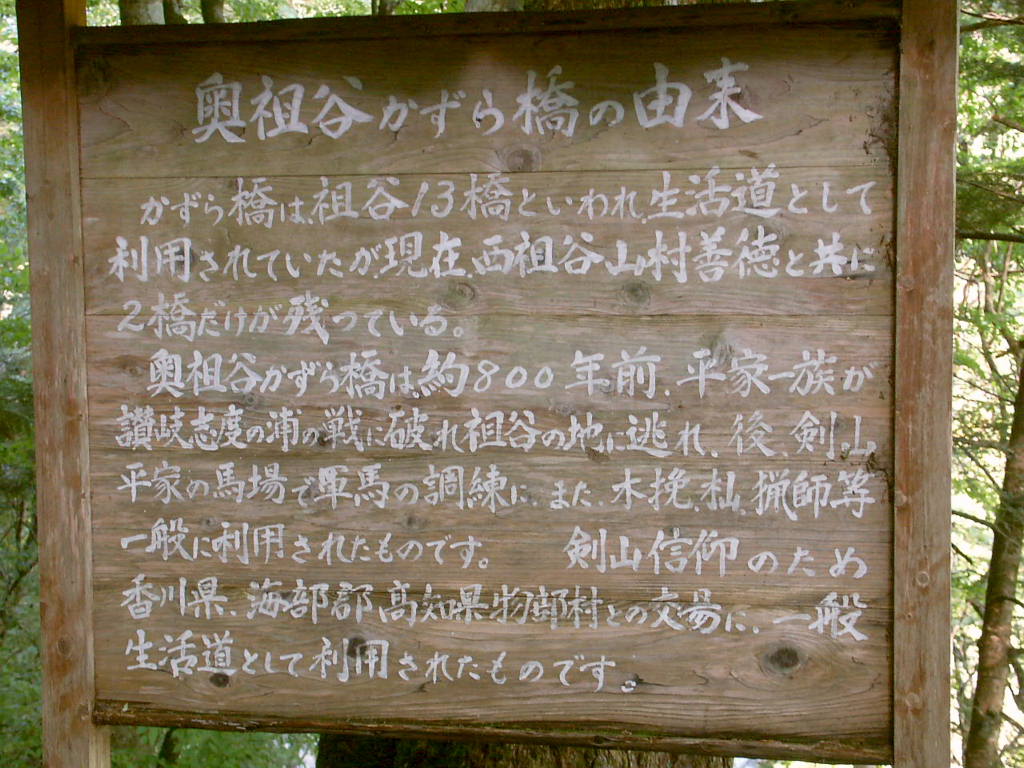 奥祖谷かずら橋の由来
かずら橋は、祖谷13橋といわれ、生活道として
利用されていたが、現在、西祖谷山村善徳と共に
2橋だけが残っている。
奥祖谷かずら橋は、約800年前、平家一族が
讃岐志度の浦の戦に破れ祖谷の地に逃れ、後、剣山
平家の馬場で軍馬の調練に、また、木挽、杣、猟師等
一般に利用されたものです。 剣山信仰のため
香川県、海部郡高知県物部村との交易に、一般
生活道として利用されたものです。